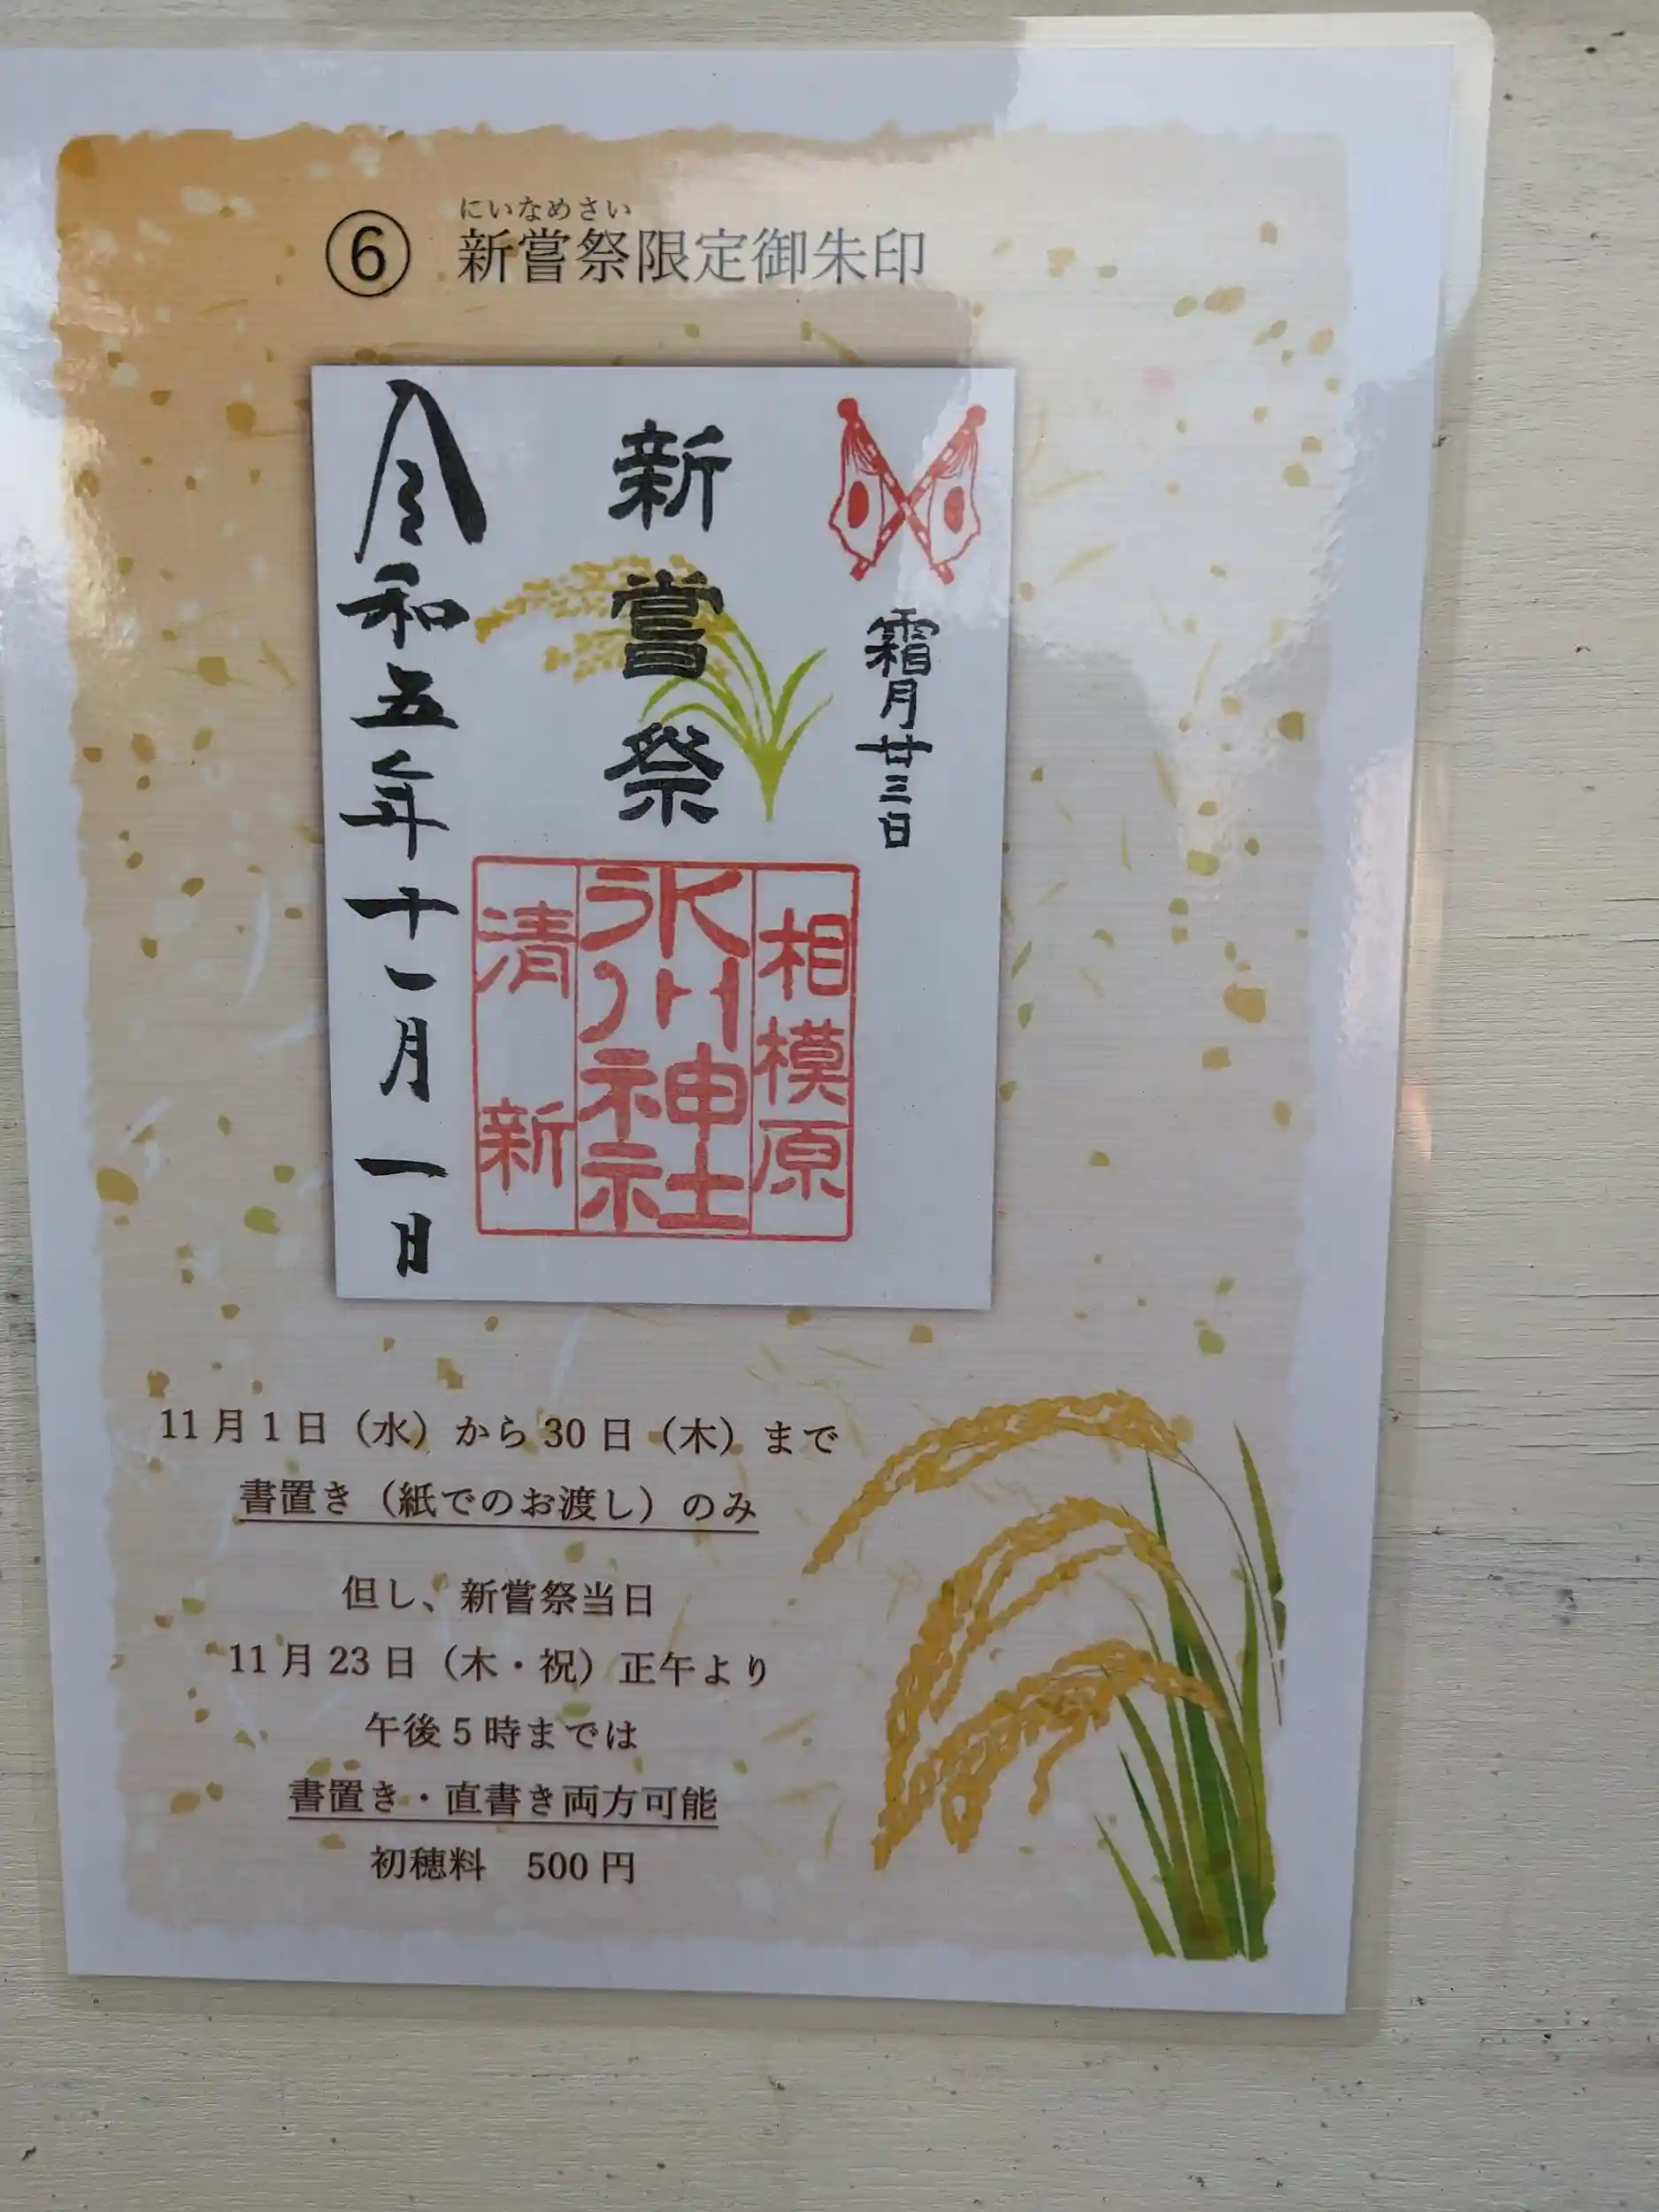 にいなめさい
⑥ 新嘗祭限定御朱印
霜月廿三日
新嘗祭
相模原
氷川神社
清新
令和五年十一月一日
11月1日（水）から30日（木）まで
書置き（紙でのお渡し）のみ
但し、新嘗祭当日
11月23日（木・祝）正午より
午後5時までは
書置き・直書き両方可能
初穂料　500円